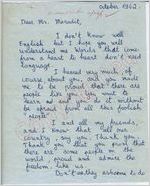 October 1962
Dear Mr. Meredith,
I don't know well
English but I hope you will
understand me. Words that come
from a heart to heart don't need
language.
I heared very much of
course about you, and you must
be proud that there are
people
and you do it without
be afraid of all this foolish
people".
I and all my friends,
and I know that all our
country say to you:
Thank you! Thank you proud that
there are some people in the
world proud and admire the
freedom, like you.
Don't worthy ashcome to do